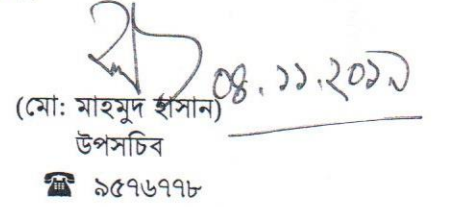 ০৪.১১.২০১৯
(মো: মাহমুদ হাসান)
উপসচিব
☎ ৯৫৭৬৭৭৮